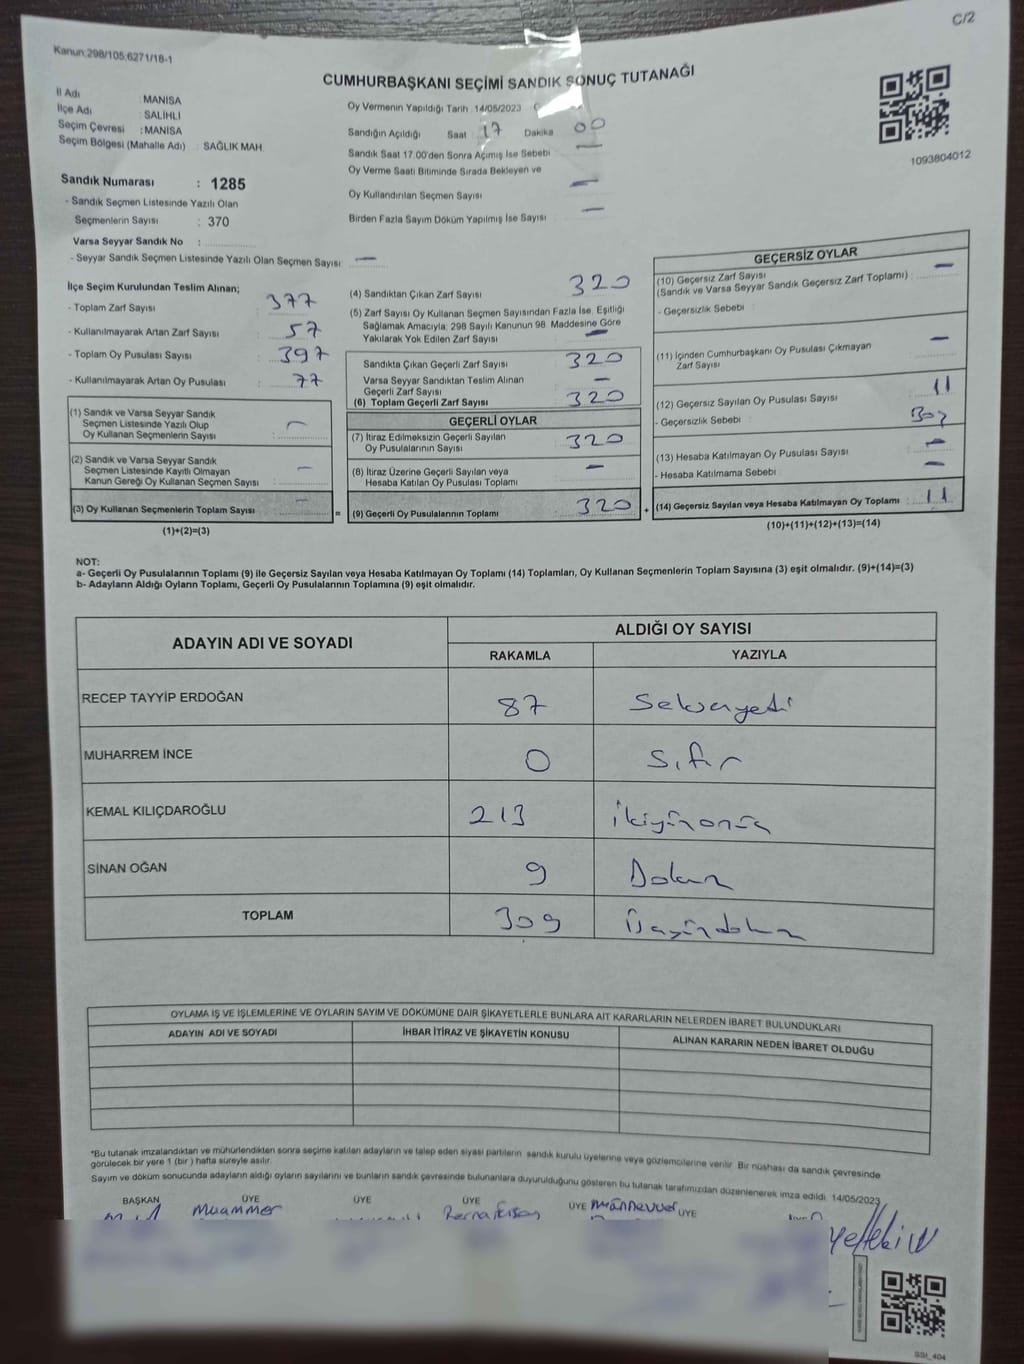 C/2
Kanun:298/105;6271/18-1
CUMHURBAŞKANI SEÇİMİ SANDIK SONUÇ TUTANAĞI
İl Adı : MANİSA
İlçe Adı : SALİHLİ
Seçim Çevresi : MANİSA
Seçim Bölgesi (Mahalle Adı) : SAĞLIK MAH.
Oy Vermenin Yapıldığı Tarih : 14/05/2023
Sandığın Açıldığı Saat : 17 Dakika : 00
Sandık Saat 17:00'den Sonra Açılmış İse Sebebi : —
Oy Verme Saati Bitiminde Sırada Bekleyen ve
Oy Kullandırılan Seçmen Sayısı —
Birden Fazla Sayım Döküm Yapılmış İse Sayısı —
1093804012
Sandık Numarası : 1285
- Sandık Seçmen Listesinde Yazılı Olan
Seçmenlerin Sayısı : 370
Varsa Seyyar Sandık No :
- Seyyar Sandık Seçmen Listesinde Yazılı Olan Seçmen Sayısı: —
İlçe Seçim Kurulundan Teslim Alınan;
- Toplam Zarf Sayısı : 377
- Kullanılmayarak Artan Zarf Sayısı : 57
- Toplam Oy Pusulası Sayısı : 397
- Kullanılmayarak Artan Oy Pusulası : 77
(1) Sandık ve Varsa Seyyar Sandık
Seçmen Listesinde Yazılı Olup
Oy Kullanan Seçmenlerin Sayısı : —
(2) Sandık ve Varsa Seyyar Sandık
Seçmen Listesinde Kayıtlı Olmayan
Kanun Gereği Oy Kullanan Seçmen Sayısı : —
(3) Oy Kullanan Seçmenlerin Toplam Sayısı : —
(1)+(2)=(3)
=
(4) Sandıktan Çıkan Zarf Sayısı : 320
(5) Zarf Sayısı Oy Kullanan Seçmen Sayısından Fazla İse, Eşitliği
Sağlamak Amacıyla; 298 Sayılı Kanunun 98. Maddesine Göre
Yakılarak Yok Edilen Zarf Sayısı : —
Sandıkta Çıkan Geçerli Zarf Sayısı : 320
Varsa Seyyar Sandıktan Teslim Alınan
Geçerli Zarf Sayısı : —
(6) Toplam Geçerli Zarf Sayısı : 320
GEÇERLİ OYLAR
(7) İtiraz Edilmeksizin Geçerli Sayılan
Oy Pusulalarının Sayısı : 320
(8) İtiraz Üzerine Geçerli Sayılan veya
Hesaba Katılan Oy Pusulası Toplamı : —
(9) Geçerli Oy Pusulalarının Toplamı : 320
+
GEÇERSİZ OYLAR
(10) Geçersiz Zarf Sayısı
(Sandık ve Varsa Seyyar Sandık Geçersiz Zarf Toplamı) : —
- Geçersizlik Sebebi :
(11) İçinden Cumhurbaşkanı Oy Pusulası Çıkmayan
Zarf Sayısı : —
(12) Geçersiz Sayılan Oy Pusulası Sayısı : 11
- Geçersizlik Sebebi :
(13) Hesaba Katılmayan Oy Pusulası Sayısı : —
- Hesaba Katılmama Sebebi : —
(14) Geçersiz Sayılan veya Hesaba Katılmayan Oy Toplamı : 11
(10)+(11)+(12)+(13)=(14)
NOT:
a- Geçerli Oy Pusulalarının Toplamı (9) ile Geçersiz Sayılan veya Hesaba Katılmayan Oy Toplamı (14) Toplamları, Oy Kullanan Seçmenlerin Toplam Sayısına (3) eşit olmalıdır. (9)+(14)=(3)
b- Adayların Aldığı Oyların Toplamı, Geçerli Oy Pusulalarının Toplamına (9) eşit olmalıdır.
ADAYIN ADI VE SOYADI
ALDIĞI OY SAYISI
RAKAMLA YAZIYLA
RECEP TAYYİP ERDOĞAN 87 Seksenyedi
MUHARREM İNCE 0 Sıfır
KEMAL KILIÇDAROĞLU 213 ikiyüzonüç
SİNAN OĞAN 9 Dokuz
TOPLAM 309 üçyüzdokuz
OYLAMA İŞ VE İŞLEMLERİNE VE OYLARIN SAYIM VE DÖKÜMÜNE DAİR ŞİKAYETLERLE BUNLARA AİT KARARLARIN NELERDEN İBARET BULUNDUKLARI
ADAYIN ADI VE SOYADI İHBAR İTİRAZ VE ŞİKAYETİN KONUSU ALINAN KARARIN NEDEN İBARET OLDUĞU
*Bu tutanak imzalandıktan ve mühürlendikten sonra seçime katılan adayların ve talep eden siyasi partilerin sandık kurulu üyelerine veya gözlemcilerine verilir. Bir nüshası da sandık çevresinde
görülecek bir yere 1 (bir) hafta süreyle asılır.
Sayım ve döküm sonucunda adayların aldığı oyların sayılarını ve bunların sandık çevresinde bulunanlara duyurulduğunu gösteren bu tutanak tarafımızdan düzenlenerek imza edildi. 14/05/2023
BAŞKAN ÜYE ÜYE ÜYE ÜYE ÜYE
Muammer
SSI_404